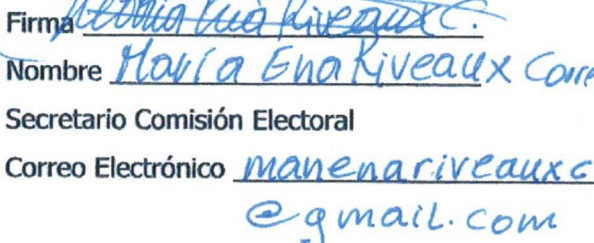 Firma María Ena Riveaux C.
Nombre María Ena Riveaux Corre
Secretario Comisión Electoral
Correo Electrónico manenariveauxc
@gmail.com